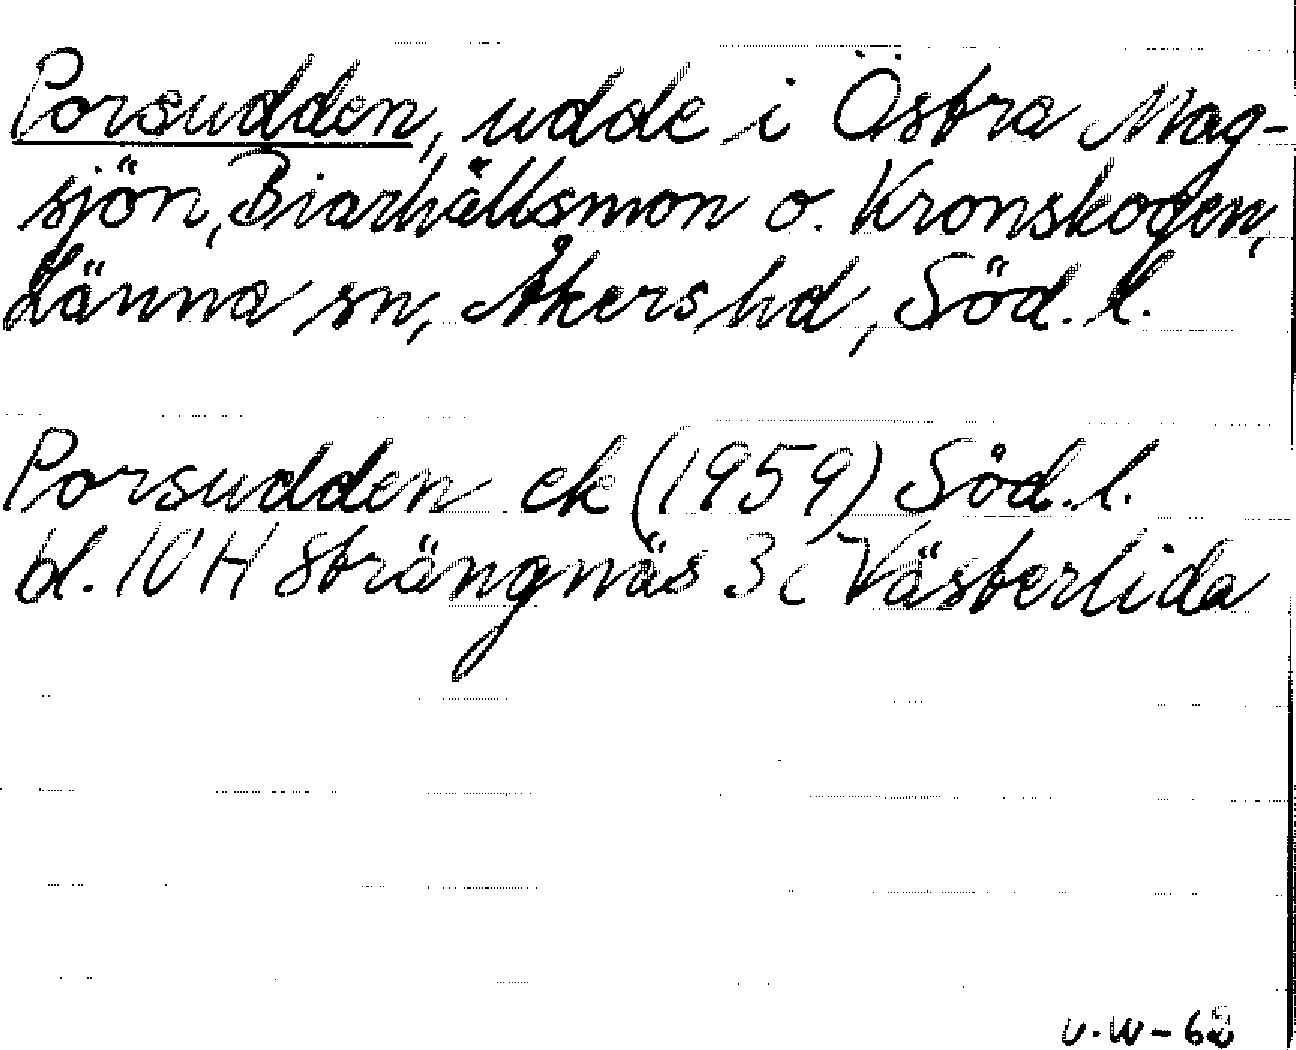 Porsudden, udde i Östra Mag-
sjön, Biarhällsmon o. Kronskogen,
Länna sn, Åkers hd, Söd. l.
Porsudden ek (1959) Söd. l.
bl. 10 H Strängnäs 3 c Västerlida
v.W-62